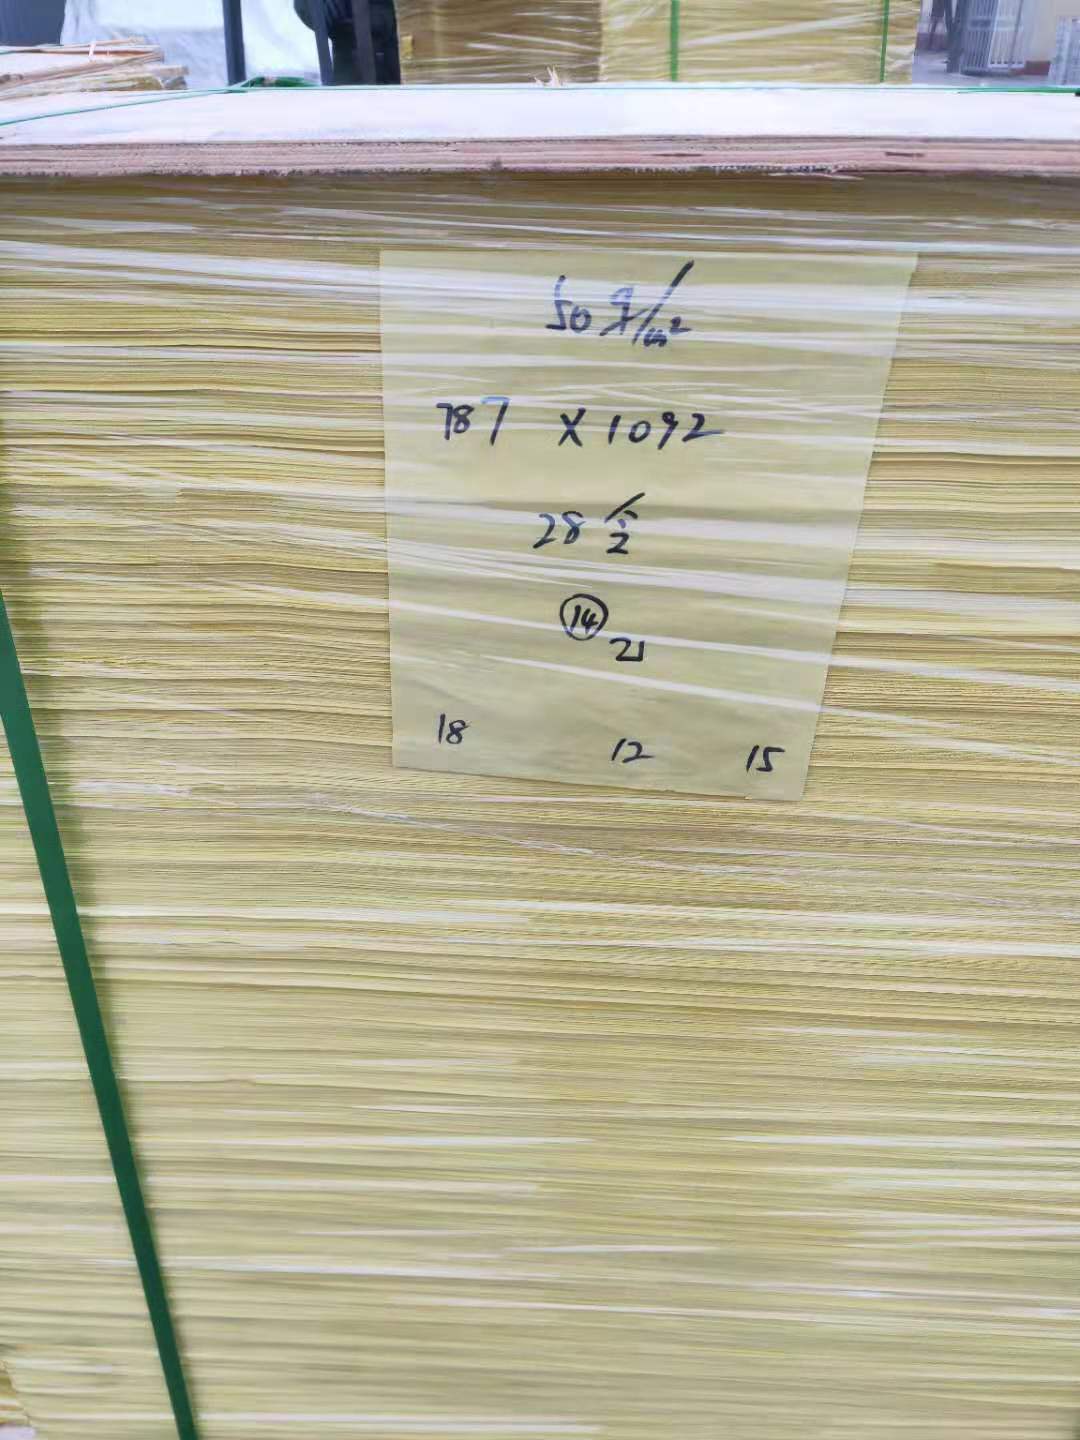 50g/m²
787 X 1092
28令
⑭
21
18 12 15